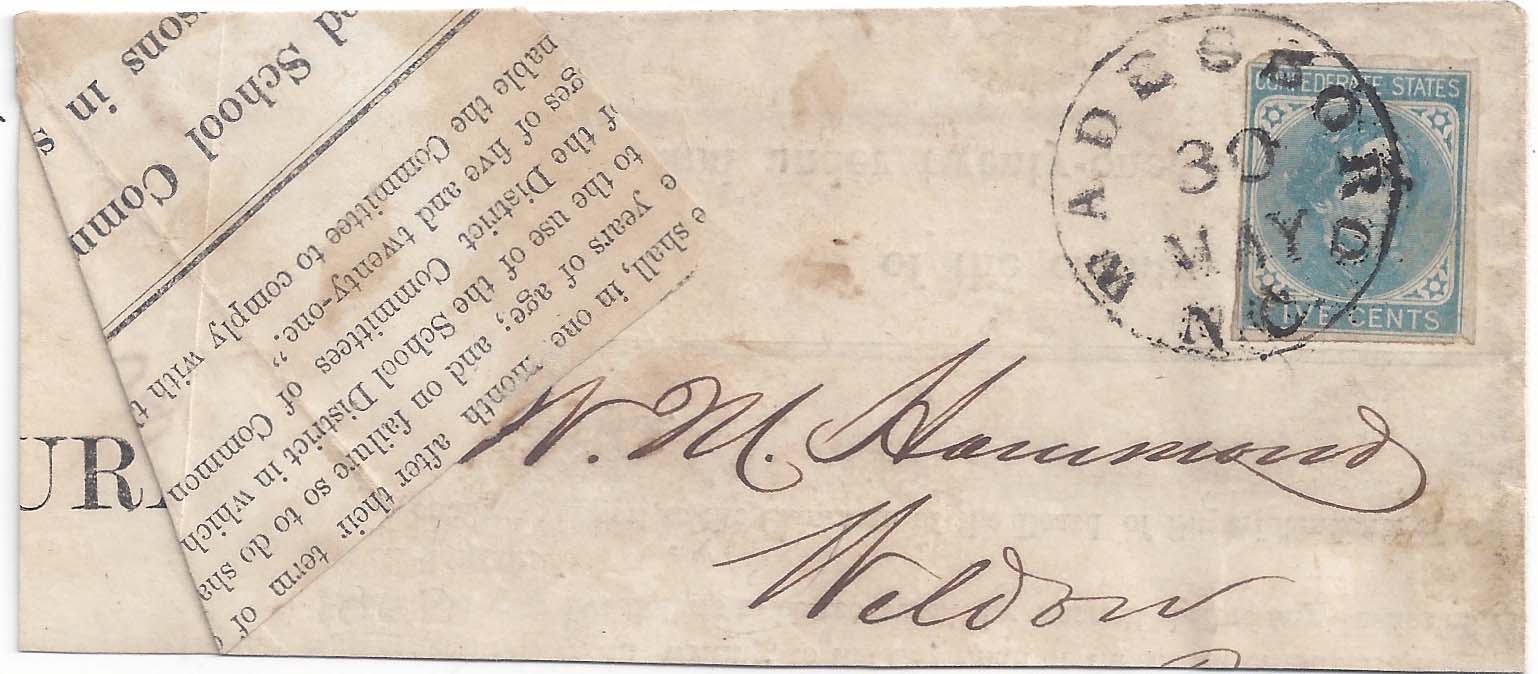 WADESBORO
30
MAY
N.C
CONFEDERATE STATES
FIVE CENTS
W. M. Hammond
Weldon
School Comm
sons in s
nable the Committee to comply with t
ges of five and twenty-one."
f the District Committees of Common
to the use of the School District in which
years of age; and on failure so to do sha
e shall, in one month after their term of
UR